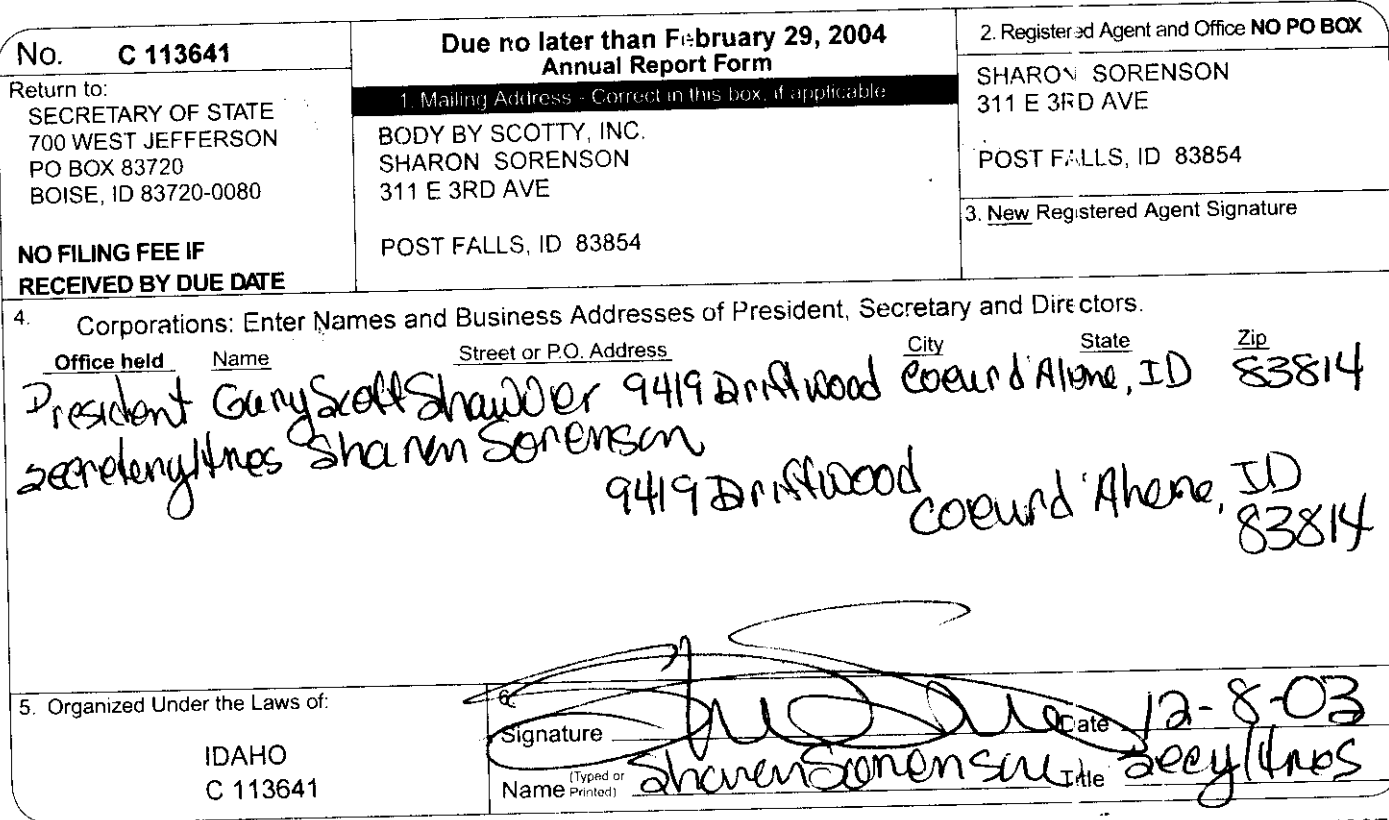 No. C 113641
Return to:
SECRETARY OF STATE
700 WEST JEFFERSON
PO BOX 83720
BOISE, ID 83720-0080
NO FILING FEE IF
RECEIVED BY DUE DATE
Due no later than February 29, 2004
Annual Report Form
1. Mailing Address - Correct in this box, if applicable
BODY BY SCOTTY, INC.
SHARON SORENSON
311 E 3RD AVE
POST FALLS, ID 83854
2. Registered Agent and Office NO PO BOX
SHARON SORENSON
311 E 3RD AVE
POST FALLS, ID 83854
3. New Registered Agent Signature
4. Corporations: Enter Names and Business Addresses of President, Secretary and Directors.
Office held Name Street or P.O. Address City State Zip
President Gary Scott 9419 Driftwood Coeur d'Alene, ID 83814
Secretary/tres Sharon Sorenson
9419 Driftwood
Coeur d'Alene, ID
83814
5. Organized Under the Laws of:
IDAHO
C 113641
6.
Signature Date 12-8-03
Name (Typed or Printed) Sharon Sorenson Title Secy/tres